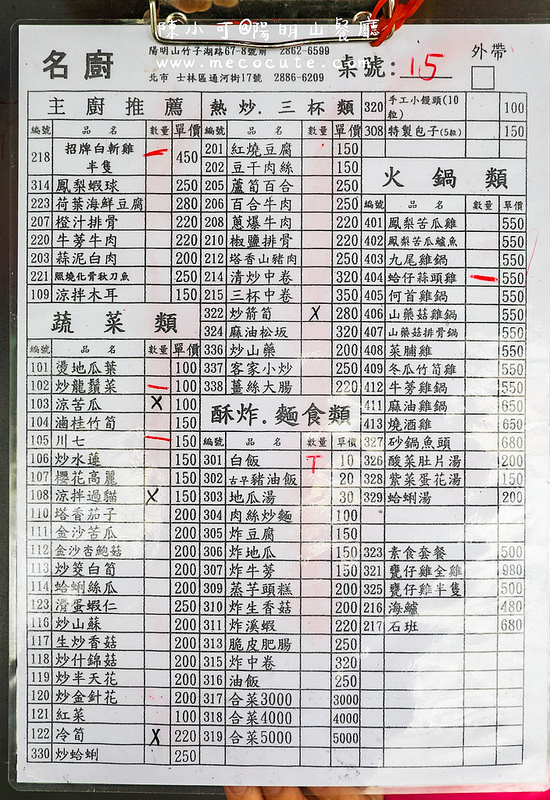 陳小可@陽明山餐廳
www.mecocute.com
名廚
陽明山竹子湖路67-8號前 2862-6599
北市 士林區通河街17號 2886-6209
桌號: 15
外帶
主廚推薦
編號 品名 數量 單價
218 招牌白斬雞半隻 450
314 鳳梨蝦球 250
223 荷葉海鮮豆腐 280
207 橙汁排骨 220
220 牛蒡牛肉 220
203 蒜泥白肉 200
221 照燒化骨秋刀魚 250
109 涼拌木耳 150
蔬菜類
編號 品名 數量 單價
101 燙地瓜葉 100
102 炒龍鬚菜 100
103 涼苦瓜 X 100
104 滷桂竹筍 150
105 川七 150
106 炒水蓮 150
107 櫻花高麗 150
108 涼拌過貓 X 150
110 塔香茄子 200
111 金沙苦瓜 200
112 金沙杏鮑菇 200
113 炒筊白筍 200
114 蛤蜊絲瓜 200
123 滑蛋蝦仁 250
116 炒山蘇 200
117 生炒香菇 200
118 炒什錦菇 200
119 炒半天花 200
120 炒金針花 200
121 紅菜 100
122 冷筍 X 220
330 炒蛤蜊 250
熱炒.三杯類
201 紅燒豆腐 150
202 豆干肉絲 150
205 蘆筍百合 250
206 百合牛肉 250
208 蔥爆牛肉 220
210 椒鹽排骨 220
212 塔香山豬肉 250
214 清炒中卷 320
215 三杯中卷 350
322 炒箭筍 X 280
324 麻油松坂 320
336 炒山藥 200
337 客家小炒 250
338 薑絲大腸 220
酥炸.麵食類
編號 品名 數量 單價
301 白飯 T 10
302 古早豬油飯 20
303 地瓜湯 30
304 肉絲炒麵 100
305 炸豆腐 150
306 炸地瓜 150
307 炸牛蒡 150
309 蒸芋頭糕 200
310 炸生香菇 200
311 炸溪蝦 220
313 脆皮肥腸 250
315 炸中卷 320
316 油飯 250
317 合菜3000 3000
318 合菜4000 4000
319 合菜5000 5000
320 手工小饅頭(10粒) 100
308 特製包子(5粒) 150
火鍋類
編號 品名 數量 單價
401 鳳梨苦瓜雞 550
402 鳳梨苦瓜鱸魚 550
403 九尾雞鍋 550
404 蛤仔蒜頭雞 550
405 何首雞鍋 550
406 山藥菇雞鍋 550
407 山藥菇排骨鍋 550
408 菜脯雞 550
409 冬瓜竹筍雞 550
412 牛蒡雞鍋 550
411 麻油雞鍋 650
413 燒酒雞 650
327 砂鍋魚頭 680
326 酸菜肚片湯 200
328 紫菜蛋花湯 150
329 蛤蜊湯 200
323 素食套餐 500
321 甕仔雞全雞 980
325 甕仔雞半隻 500
216 海鱸 480
217 石斑 680